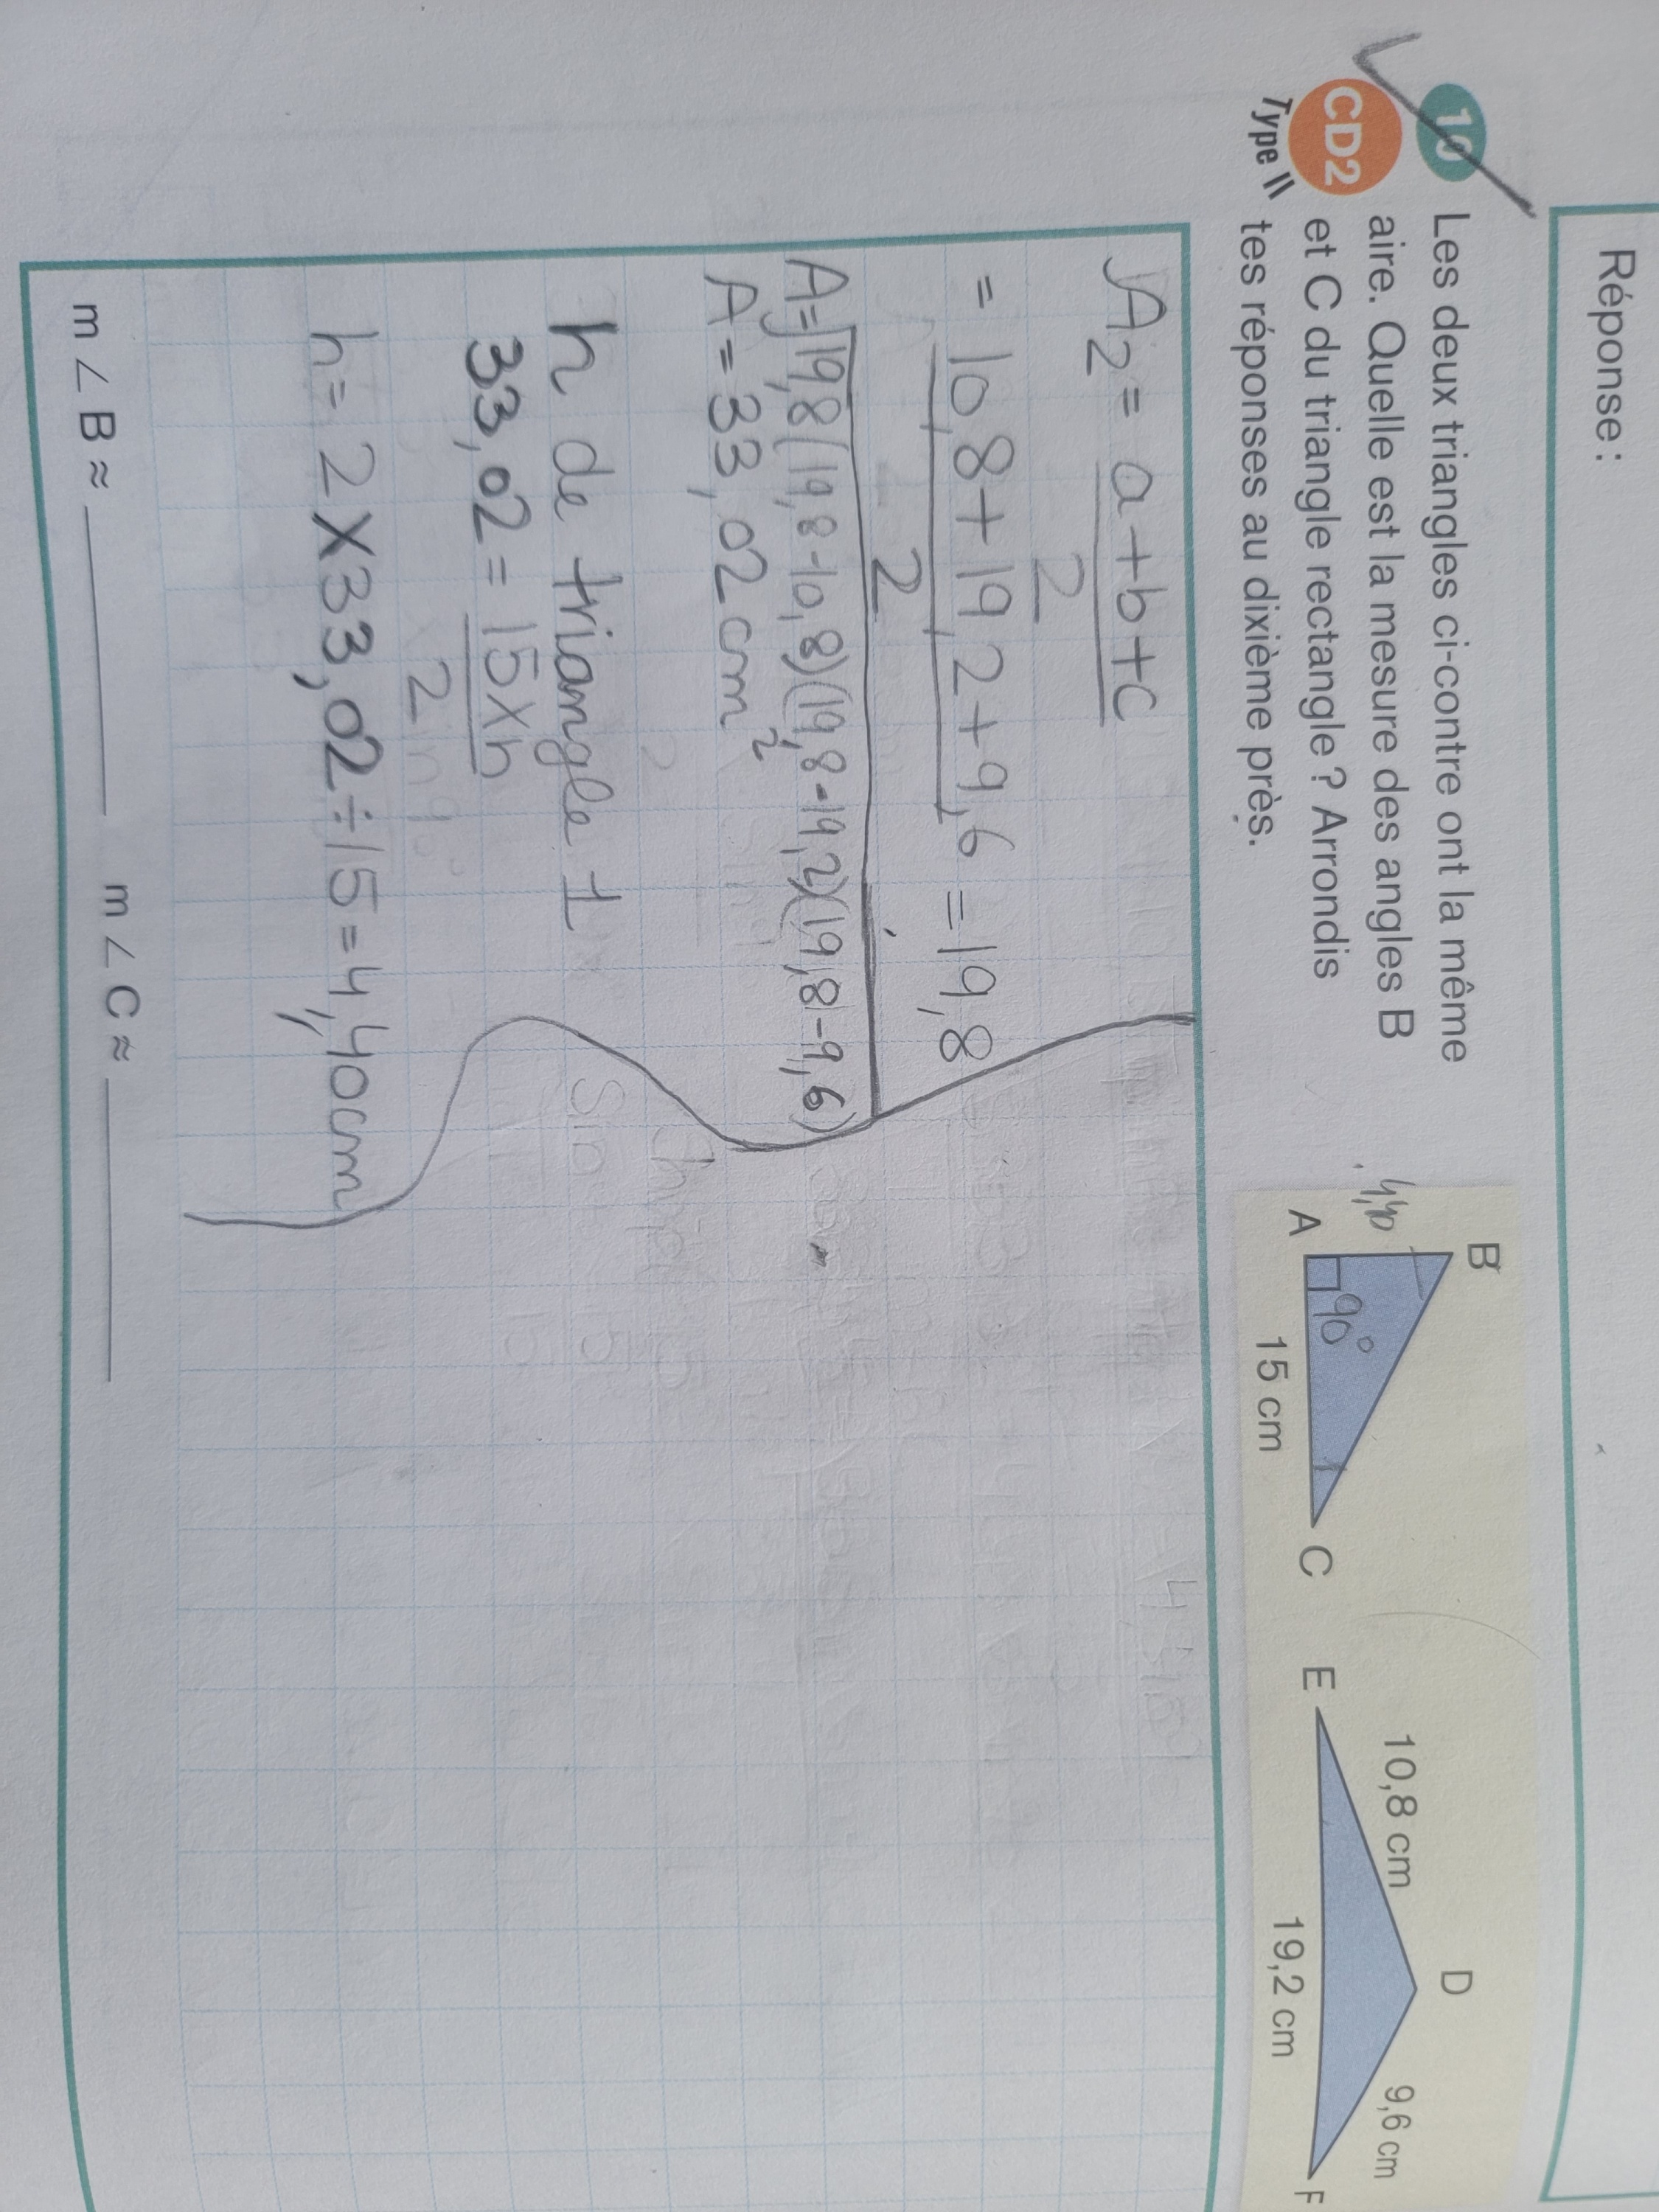 Réponse :
10 Les deux triangles ci-contre ont la même
CD2 aire. Quelle est la mesure des angles B
et C du triangle rectangle ? Arrondis
Type II tes réponses au dixième près.
B
4,40
A
90°
15 cm
C
D
10,8 cm
9,6 cm
E
19,2 cm
F
A2 = a+b+c
2
= 10,8+19,2+9,6 = 19,8
2
A=√19,8(19,8-10,8)(19,8-19,2)(19,8-9,6)
A=33,02cm²
h de triangle 1
33,02 = 15xh
2
h= 2X33,02÷15=4,40cm
m ∠ B ≈
m ∠ C ≈